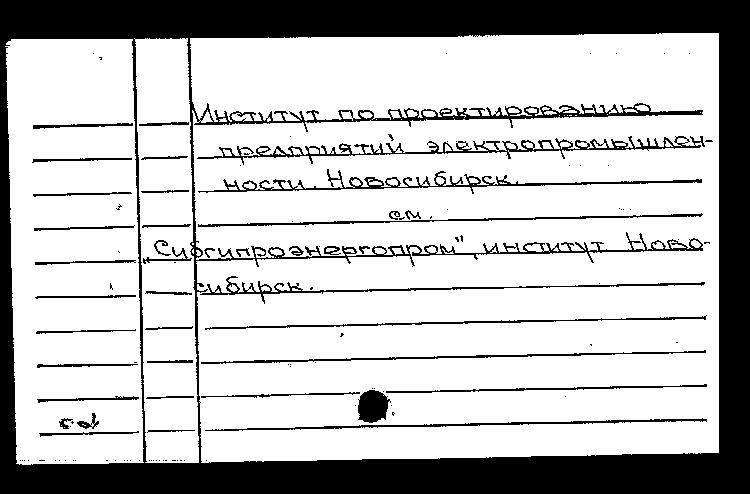 Институт по проектированию
предприятий электропромышлен-
ности. Новосибирск.
см.
„Сибгипроэнергопром", институт Ново-
сибирск.